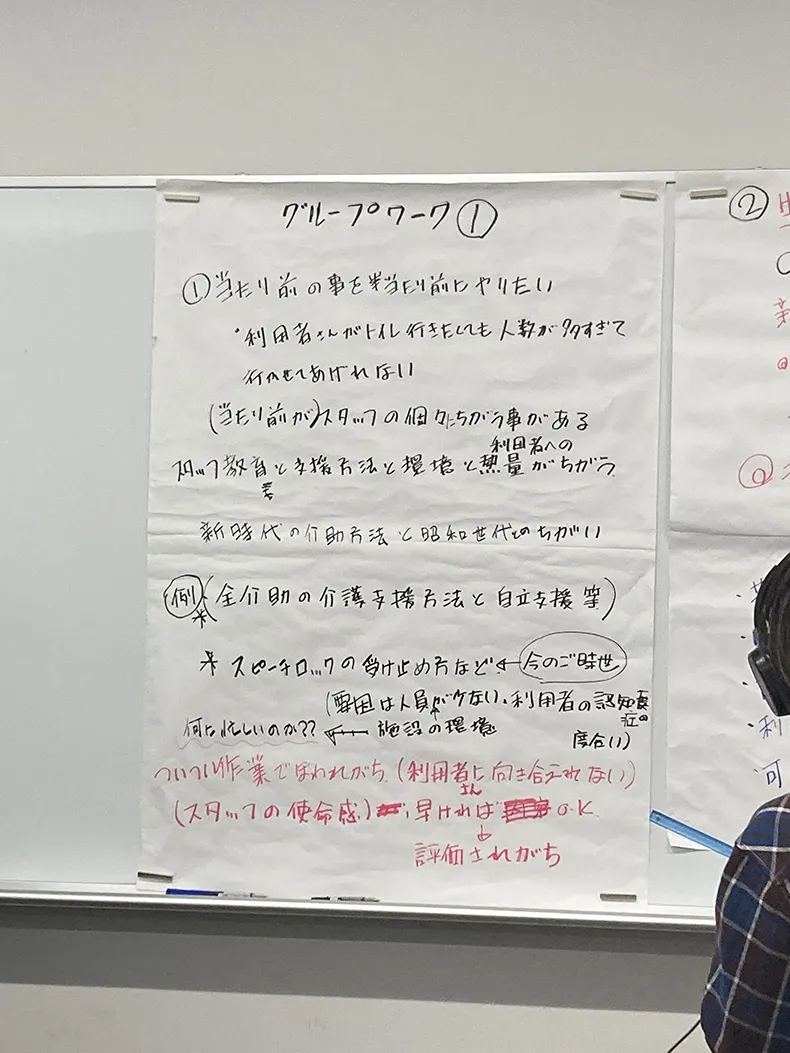 グループワーク①
①当たり前の事を当たり前にやりたい
・利用者さんがトイレ行きたくても人数が多すぎて
行かせてあげれない
(当たり前が)スタッフの個々ちがう事がある
利用者への
スタッフ教育と支援方法と環境と熱量がちがう
新時代の介助方法と昭和世代とのちがい
例 (全介助の介護支援方法と自立支援等)
* スピーチロックの受け止め方など ← 今のご時世
(要因は人員が少ない、利用者の認知症の
度合い)
何に忙しいのか?? ← 施設の環境
ついつい作業でおわれがち (利用者さんに向き合えれない)
(スタッフの使命感) 早ければ O.K.
↓
評価されがち
②